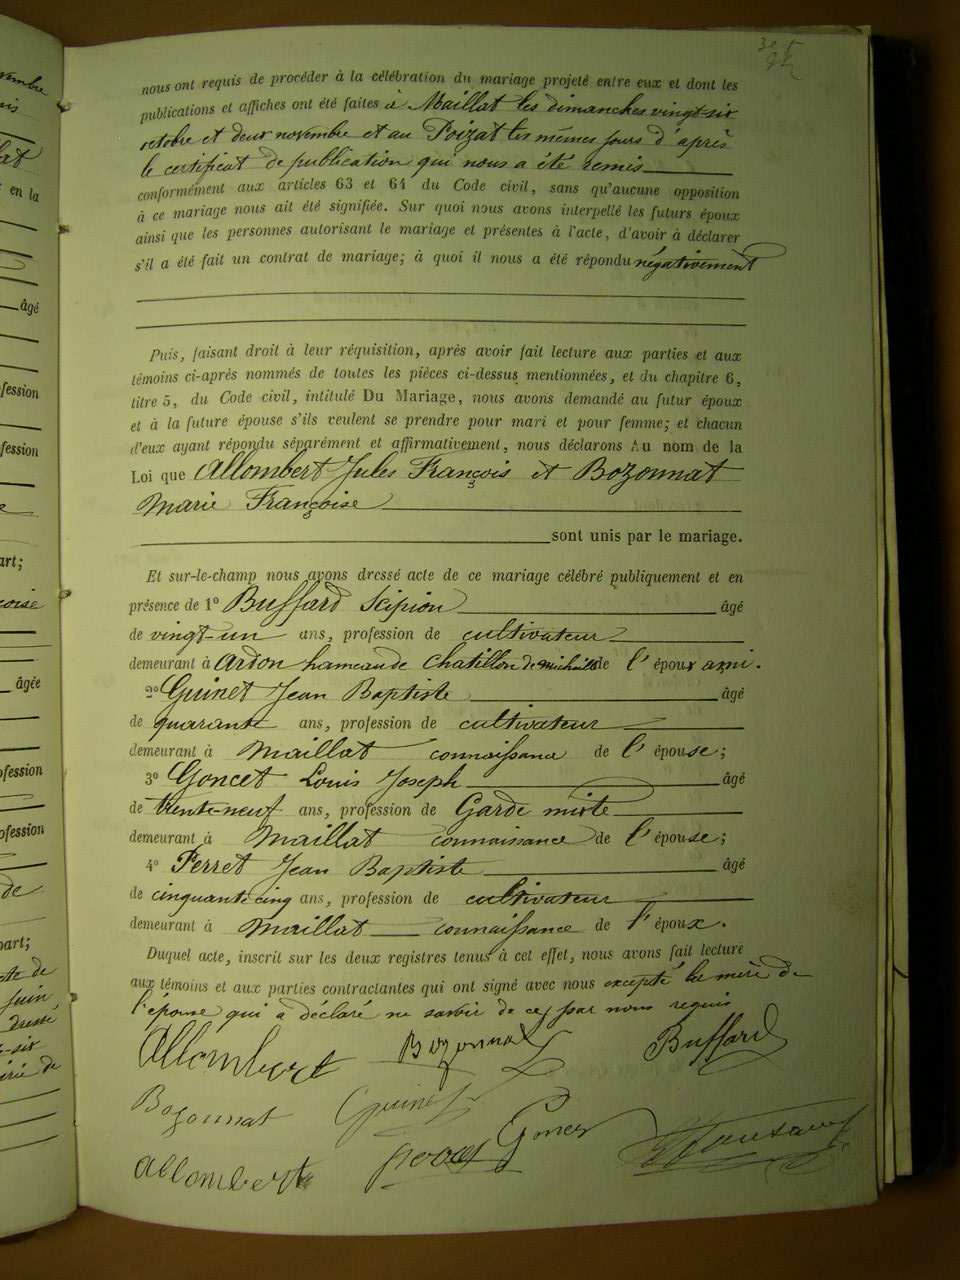 nous ont requis de procéder à la célébration du mariage projeté entre eux et dont les
publications et affiches ont été faites à Maillat les dimanches vingt-six
octobre et deux novembre et au Poizat les mêmes jours d'après
le certificat de publication qui nous a été remis
conformément aux articles 63 et 64 du Code civil, sans qu'aucune opposition
à ce mariage nous ait été signifiée. Sur quoi nous avons interpellé les futurs époux
ainsi que les personnes autorisant le mariage et présentes à l'acte, d'avoir à déclarer
s'il a été fait un contrat de mariage; à quoi il nous a été répondu négativement
Puis, faisant droit à leur réquisition, après avoir fait lecture aux parties et aux
témoins ci-après nommés de toutes les pièces ci-dessus mentionnées, et du chapitre 6,
titre 5, du Code civil, intitulé Du Mariage, nous avons demandé au futur époux
et à la future épouse s'ils veulent se prendre pour mari et pour femme; et chacun
d'eux ayant répondu séparément et affirmativement, nous déclarons Au nom de la
Loi que Allombert Jules François et Bozonnat
Marie Françoise
sont unis par le mariage.
Et sur-le-champ nous avons dressé acte de ce mariage célébré publiquement et en
présence de 1° Buffard Scipion âgé
de vingt-un ans, profession de cultivateur
demeurant à Ardon hameau de Chatillon de michaille de l'époux ami.
2° Guinet Jean Baptiste âgé
de quarante ans, profession de cultivateur
demeurant à Maillat connaissance de l'épouse;
3° Goncet Louis Joseph âgé
de trente-neuf ans, profession de Garde mixte
demeurant à Maillat connaissance de l'épouse;
4° Perret Jean Baptiste âgé
de cinquante-cinq ans, profession de cultivateur
demeurant à Maillat connaissance de l'époux.
Duquel acte, inscrit sur les deux registres tenus à cet effet, nous avons fait lecture
aux témoins et aux parties contractantes qui ont signé avec nous excepté la mère de
l'épouse qui a déclaré ne savoir de ce par nous requis
Allombert Bozonnat Buffard
Bozonnat Guinet
Goncet
Allombert Perret